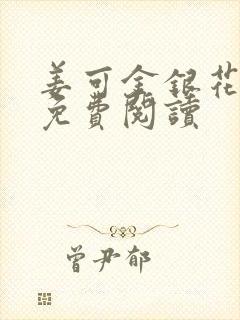 姜可金銀花
免費閱讀
曾尹郁